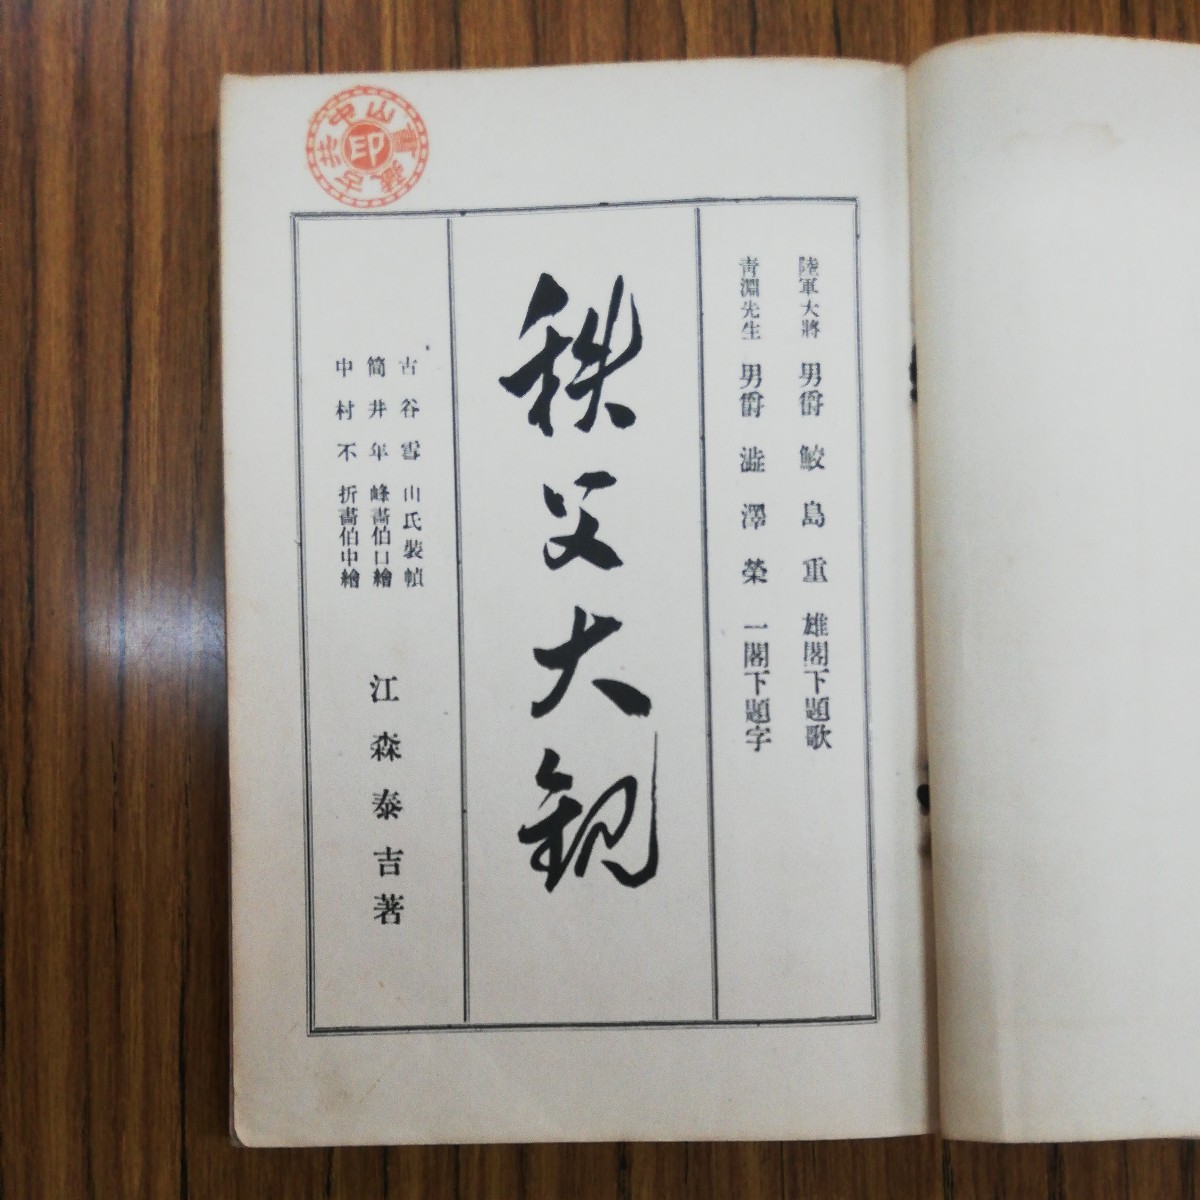 陸軍大將 男爵 鮫島重雄閣下題歌
青淵先生 男爵 澁澤榮一閣下題字
秩父大観
古谷雪山氏裝幀
筒井年峰畵伯口繪
中村不折畵伯中繪
江森泰吉著
中山
印